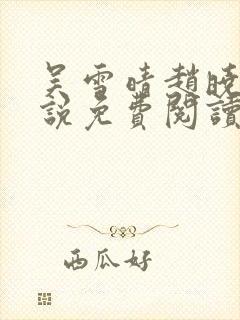 吴雪晴赵晓
說免費閱讀
西瓜好